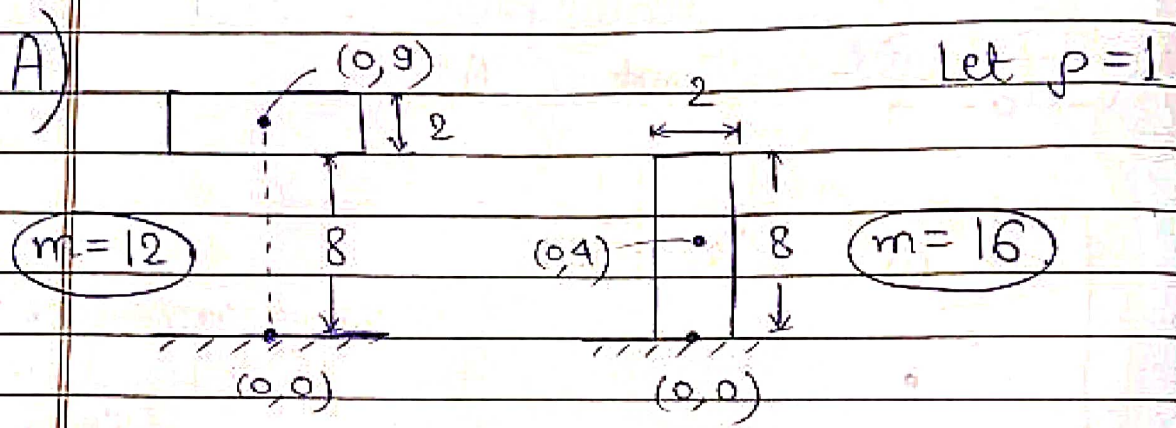 A)
(0,9)
Let ρ = 1
2
2
m = 12
8
(0,4)
8
m = 16
(0,0)
(0,0)